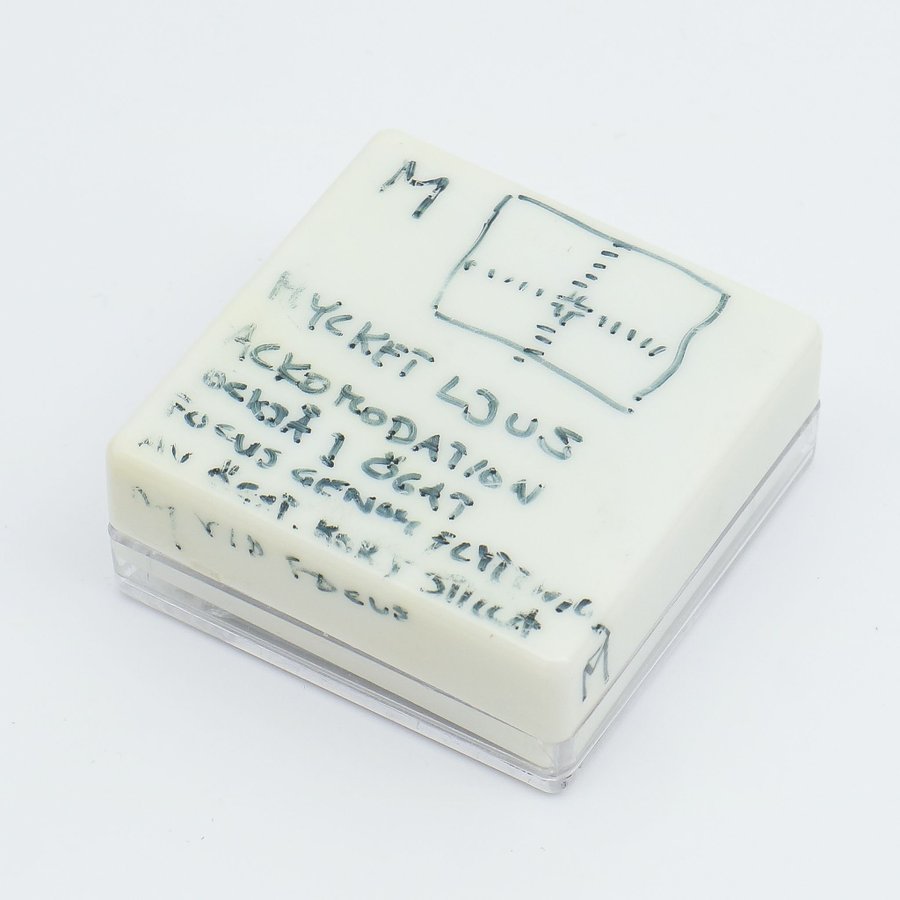 M
MYCKET LJUS
ACKOMODATION
OCKSÅ I ÖGAT
FOCUS GENOM FLYTTNING
AV KORT SKILLA
VID FOCUS
M